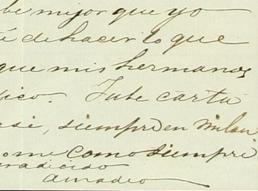 be mejor que yo
é de hacer lo que
que mis hermanos
dico. Tube carta
esi, siempre en Milan
como siempre
amadeo